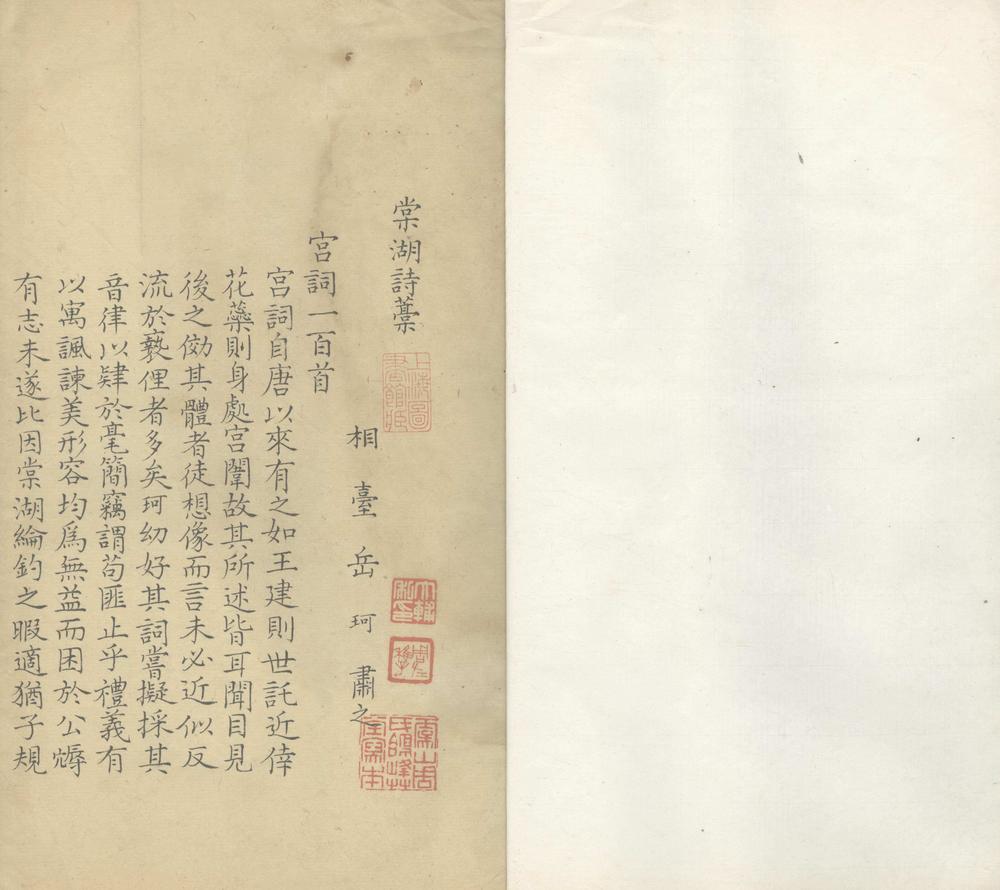 棠湖詩藁
相臺岳珂肅之
宮詞一百首
宮詞自唐以來有之如王建則世託近倖
花蘂則身處宮闈故其所述皆耳聞目見
後之効其體者徒想像而言未必近似反
流於褻俚者多矣珂幼好其詞嘗擬採其
音律以肄於毫簡竊謂苟匪止乎禮義有
以寓諷諫美形容均為無益而困於公嬶
有志未遂比因棠湖綸釣之暇適猶子規
上海圖書館藏